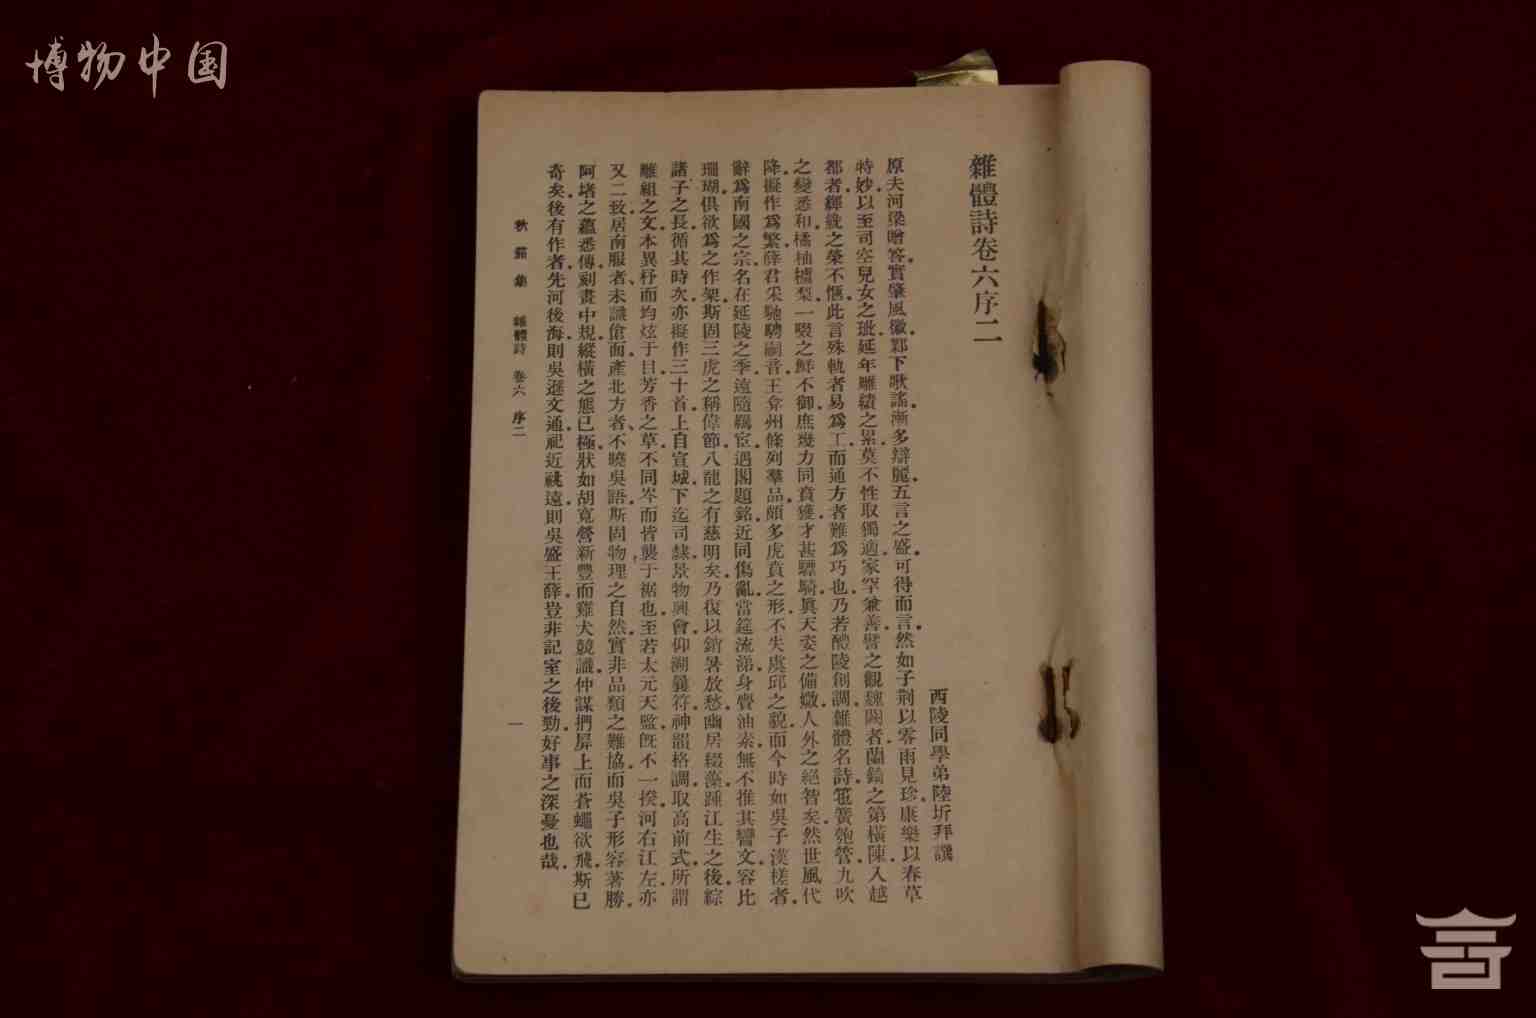 博物中国
雜體詩卷六序二
西陵同學弟陸圻拜譔
原夫河梁贈答實肇風徽鄴下歌謠漸多辯麗五言之盛可得而言然如子荆以零雨見珍康樂以春草
特妙以至司空兒女之玼延年雕繢之累莫不性取獨適家罕兼善譬之觀魏闕者蘭錡之第橫陳入越
都者纙紈之榮不愜此言殊軌者易為工而通方者難為巧也乃若醴陵創調雜體名詩笣簧匏管九吹
之變悉和橘柚樝梨一啜之鮮不御庶幾力同賁獲才甚驃騎眞天姿之備媺人外之絕智矣然世風代
降擬作為繁薛君采馳騁嗣音王弇州條列羣品頗多虎賁之形不失虞邱之貌而今時如吳子漢槎者
辭為南國之宗名在延陵之季遠隨羈宦遇閣題銘近同傷亂當筵流涕身賷油素無不推其讋文容比
珊瑚俱欲為之作架斯固三虎之稱偉節八龍之有慈明矣乃復以銷暑放愁幽居綴藻踵江生之後綜
諸子之長循其時次亦擬作三十首上自宣城下迄司隸景物興會仰溯曩符神韻格調取高前式所謂
雕組之文本異杼而均炫于目芳香之草不同岑而皆襲于裾也至若太元天監旣不一揆河右江左亦
又二致居南服者未識傖面產北方者不曉吳語斯固物理之自然實非品類之難協而吳子形容著勝
阿堵之蘊悉傳刻畫中規縱橫之態已極狀如胡寬營新豐而雞犬競識仲謀捫屏上而蒼蠅欲飛斯已
奇矣後有作者先河後海則吳遜文通祀近祧遠則吳盛王薛豈非記室之後勁好事之深憂也哉
秋笳集 雜體詩 卷六 序二
一